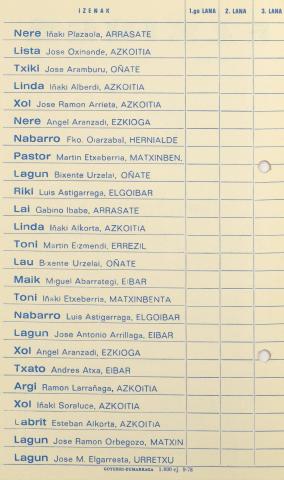 IZENAK 1.go LANA 2. LANA 3. LANA
Nere Iñaki Plazaola, ARRASATE
Lista Jose Oxinande, AZKOITIA
Txiki Jose Aramburu, OÑATE
Linda Iñaki Alberdi, AZKOITIA
Xol Jose Ramon Arrieta, AZKOITIA
Nere Angel Aranzadi, EZKIOGA
Nabarro Fko. Oiarzabal, HERNIALDE
Pastor Martin Etxeberria, MATXINBEN.
Lagun Bixente Urzelai, OÑATE
Riki Luis Astigarraga, ELGOIBAR
Lai Gabino Ibabe, ARRASATE
Linda Iñaki Alkorta, AZKOITIA
Toni Martin Eizmendi, ERREZIL
Lau Bixente Urzelai, OÑATE
Maik Miguel Abarrategi, EIBAR
Toni Iñaki Etxeberria, MATXINBENTA
Nabarro Luis Astigarraga, ELGOIBAR
Lagun Jose Antonio Arrillaga, EIBAR
Xol Angel Aranzadi, EZKIOGA
Txato Andres Atxa, EIBAR
Argi Ramon Larrañaga, AZKOITIA
Xol Iñaki Soraluce, AZKOITIA
Labrit Esteban Alkorta, AZKOITIA
Lagun Jose Ramon Orbegozo, MATXIN
Lagun Jose M. Elgarresta, URRETXU
GOYERRI-ZUMARRAGA 1.000 ej. 9-78